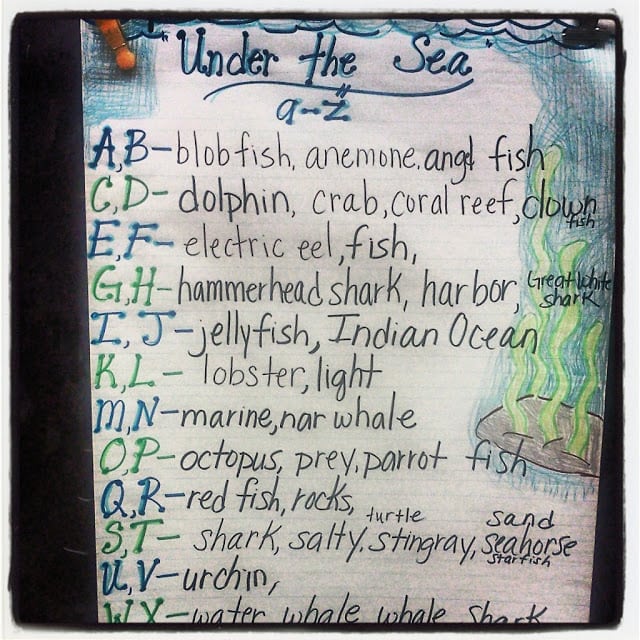 "Under the Sea"
a-z
A,B-blobfish, anemone, angel fish
C,D- dolphin, crab, coral reef, clown fish
E,F- electric eel, fish,
G,H-hammerhead shark, harbor, Great White shark
I, J -jellyfish, Indian Ocean
K,L- lobster, light
M,N-marine, nar whale
O,P-octopus, prey, parrot fish
Q,R-red fish, rocks,
turtle sand
S,T- shark, salty, stingray, seahorse
starfish
U,V-urchin,
W,X-water, whale, whale shark